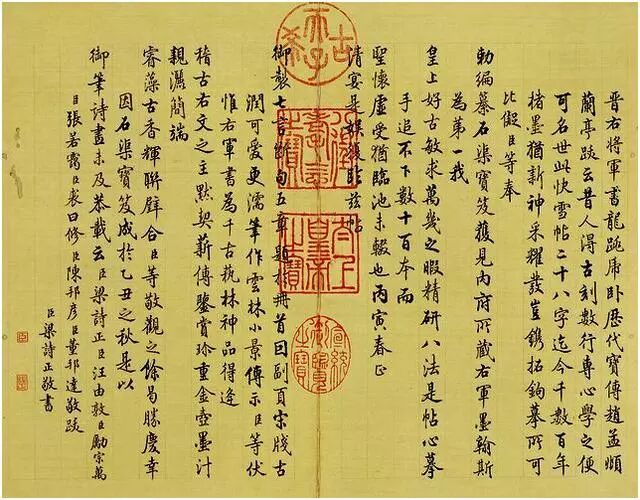 晉右將軍書龍跳虎卧歷代寶傳趙孟頫
蘭亭跋云昔人得古刻數行專心學之便
可名世此快雪帖二十八字迄今千數百年
楮墨猶新神采耀發豈鐫拓鈎摹所可
比儗臣等奉
勅編纂石渠寶笈獲見內府所藏右軍墨翰斯
為第一我
皇上好古敏求萬幾之暇精研八法是帖心摹
手追不下數十百本而
聖懷虛受猶臨池未輟也丙寅春正
清宴是娛復臨茲帖
御製七言斷句五章題於冊首因副頁宋牋古
潤可愛更濡筆作雲林小景傳示臣等伏
惟右軍書為千古藝林神品得逢
稽古右文之主默契薪傳鑒賞珍重金壺墨汁
親灑簡端
睿藻古香輝聯璧合臣等敬觀之餘曷勝慶幸
因石渠寶笈成於乙丑之秋是以
御筆詩畫未及恭載云臣梁詩正臣汪由敦臣勵宗萬
臣張若靄臣裘曰修臣陳邦彥臣董邦達敬跋
臣梁詩正敬書
古希天子
八徵耄念之寶
太上皇帝之寶
宣統御覽之寶